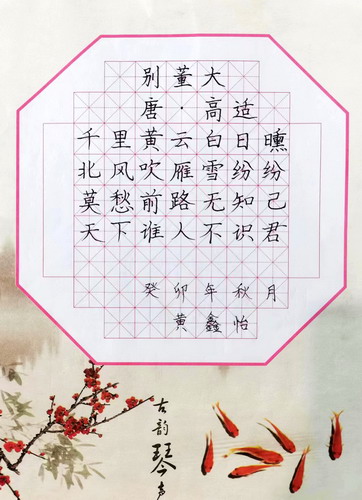 别董大
唐·高适
千里黄云白日曛
北风吹雁雪纷纷
莫愁前路无知己
天下谁人不识君
癸卯年秋月
黄鑫怡
古韵琴声